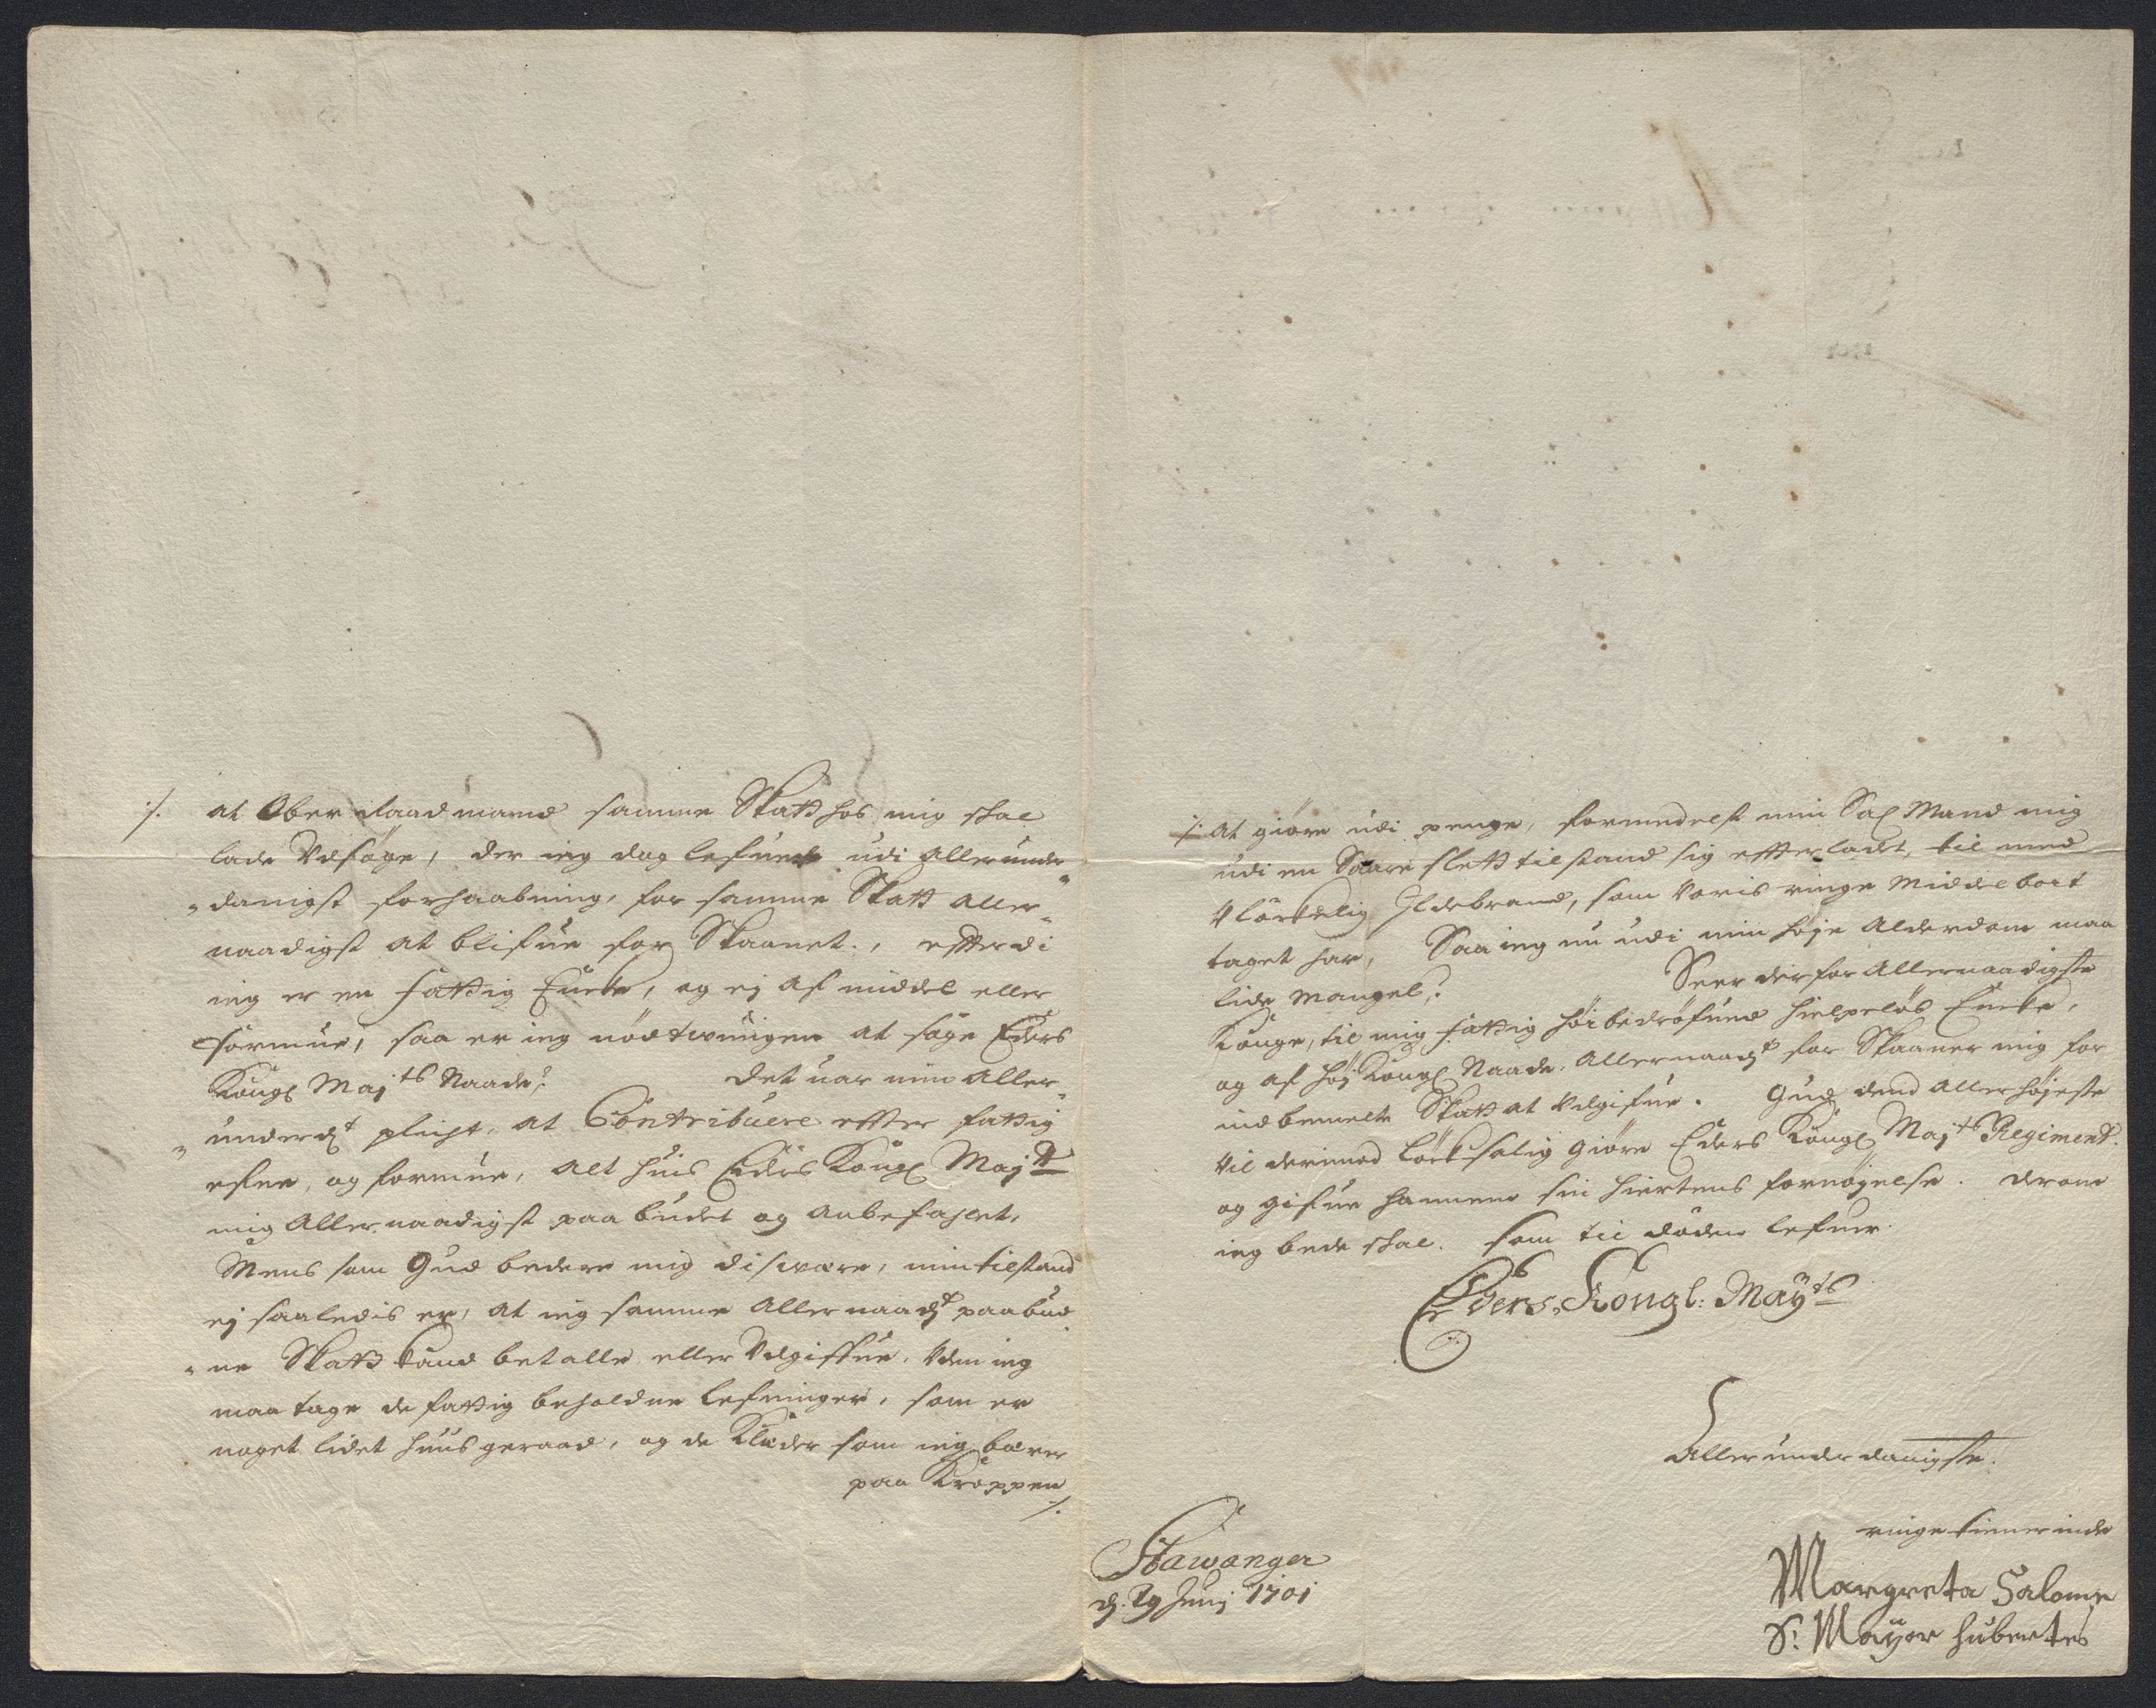 ./. at Ober Raadmand samme Skatt hos mig skal
lade Vdsøge, der ieg dog lefuede udi allerunder
„danigst forhaabning, for samme Skatt aller„
naadigst at blifue for Skaanet., efterdi
ieg er en fattig Encke, og ej af middel eller
formue, saa er ieg nødtwungen at søge Eders
Kongl Maj.ts Naade? det var min aller„
„underd.t pligt, at Contribuere effter fattig
efne, og formue, alt huis Eders Kongl Maj.tt
mig Aller naadigst paa budet og anbefahlet,
Mens som Gud bedere mig diswære, min tilstand
ej saaledis er, at ieg samme Aller naad.t paabud
„ne Skatt kand betalle eller Vdgiffue, Vden ieg
maa tage de fattig beholdne lefninger, som er
noget lidet huus geraad, og de Klæder som ieg bærer
paa Kroppen
./.
./. at giøre udi penge, formedelst min Sal Mand mig
udi en Saare slett tilstand sig effterladt, til med
Vlöckelig Ildebrand, som Voris ringe Middel bort
taget har, Saa ieg nu udi min høje Alderdom maa
lide Mangel? Seer derfor Allernaadigste
Konge, til mig fattig høi bedrøfuend hielpeløs Encke,
og af høj Kongl Naade. Allernaad.t for Skaaner mig for
indbemelte Skatt at Vdgifue. Gud dend Allerhøjeste
Vil derimod löcksalig giøre Eders Kongl Maj.ts Regiment.
og gifue hannem sin hiertens fornøjelse. derom
ieg bede skal. som til døden lefuer.
Eders Kongl: Mayts
Allerunderdanigste.
ringe tienerinde
Stawanger
d. 29 Junj 1701
Margreta Salome
S: Mayor Hubertes